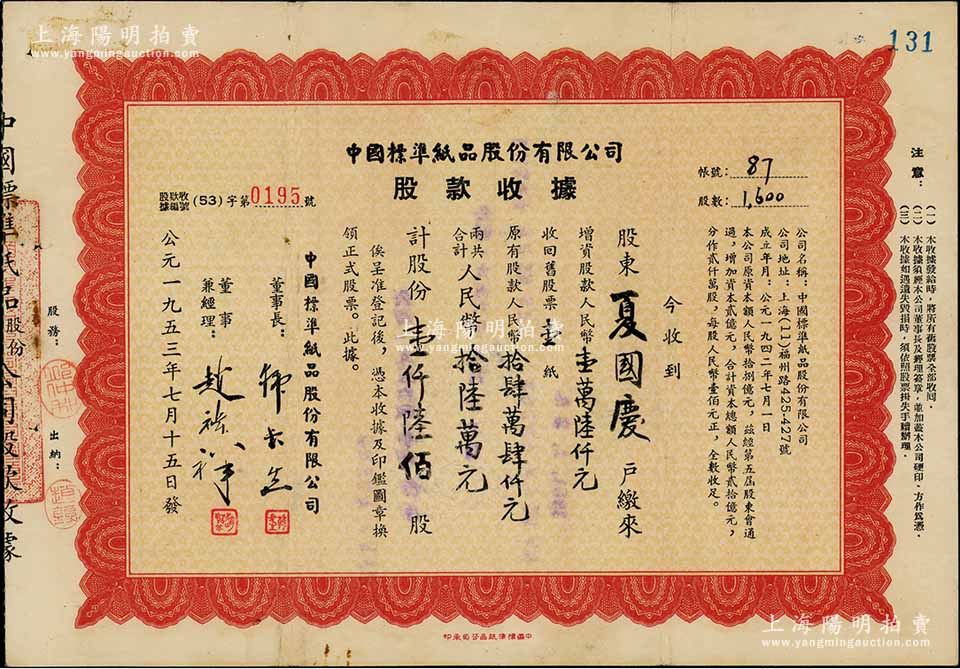 上海陽明拍賣
www.yangmingauction.com
131
中國標準紙品股份有限公司
股款收據
股款收據編號(53)字第0195號
帳號:87
股數:1,600
公司名稱:中國標準紙品股份有限公司
公司地址:上海(11)福州路425-427號
成立年月:公元一九四二年七月一日
本公司原資本額人民幣拾捌億元,茲經第五屆股東會通
過,增加資本貳億元,合計資本總額人民幣貳拾億元,
分作貳仟萬股,每股人民幣壹佰元正,全數收足。
今收到
股東夏國慶戶繳來
增資股款人民幣壹萬陸仟元
收回舊股票壹紙
原有股款人民幣拾肆萬肆仟元
兩共合計人民幣拾陸萬元
計股份壹仟陸佰股
俟呈准登記後,憑本收據及印鑑圖章換
領正式股票。此據。
中國標準紙品股份有限公司
董事長:
董事兼經理:
公元一九五三年七月十五日發
注意:
(一)本收據發給時,將所有舊股票全部收回.
(二)本收據須經本公司董事長及經理簽章,並加蓋本公司硬印、方作為憑.
(三)本收據如遇遺失毀損時,須依照股票掛失手續辦理.
股務:
出納:
中國標準紙品股份公司股款收據
中國標準紙品公司承印
上海陽明拍賣
www.yangmingauction.com
上海陽明拍賣
www.yangmingauction.com